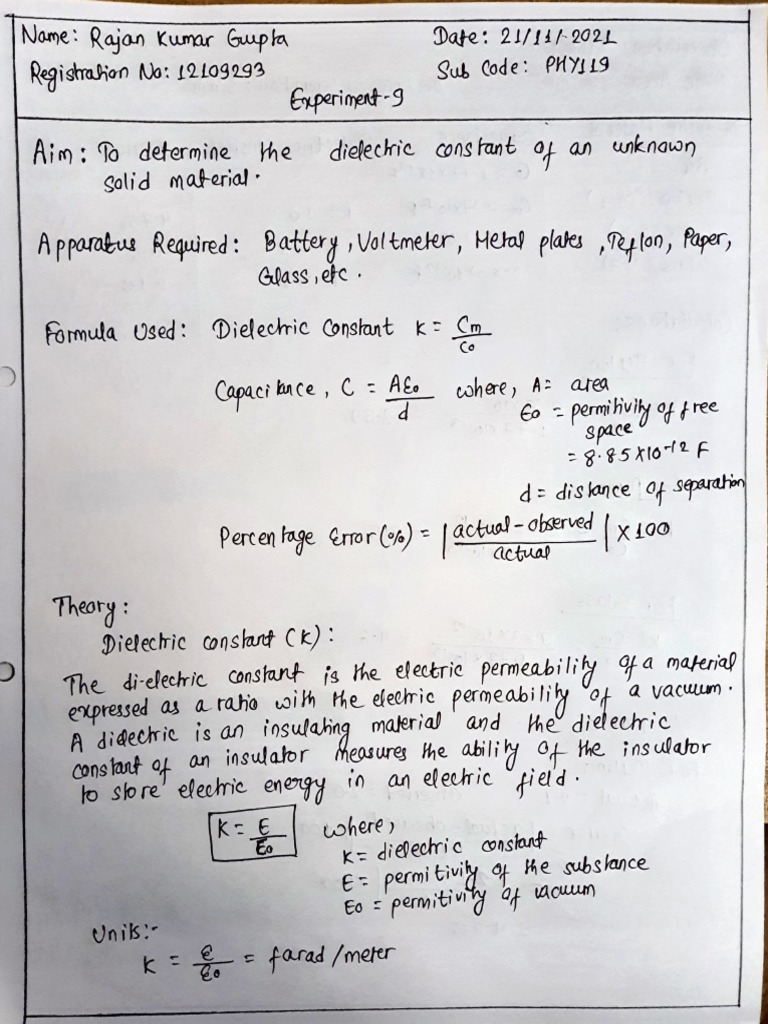 Name: Rajan Kumar Gupta Date: 21/11/2021
Registration No: 12109293 Sub Code: PHY119
Experiment-9
Aim: To determine the dielectric constant of an unknown
solid material.
Apparatus Required: Battery, Voltmeter, Metal plates, Teflon, Paper,
Glass, etc.
Formula Used: Dielectric Constant K = Cm/Co
Capacitance, C = Aεo/d where, A = area
εo = permitivity of free
space
= 8.85×10-12 F
d = distance of separation
Percentage Error (%) = |actual-observed/actual| × 100
Theory:
Dielectric constant (K):
The di-electric constant is the electric permeability of a material
expressed as a ratio with the electric permeability of a vacuum.
A dielectric is an insulating material and the dielectric
constant of an insulator measures the ability of the insulator
to store electric energy in an electric field.
K = E/Eo where,
K = dielectric constant
E = permitivity of the substance
Eo = permitivity of vacuum
Units:-
K = ε/εo = farad/meter